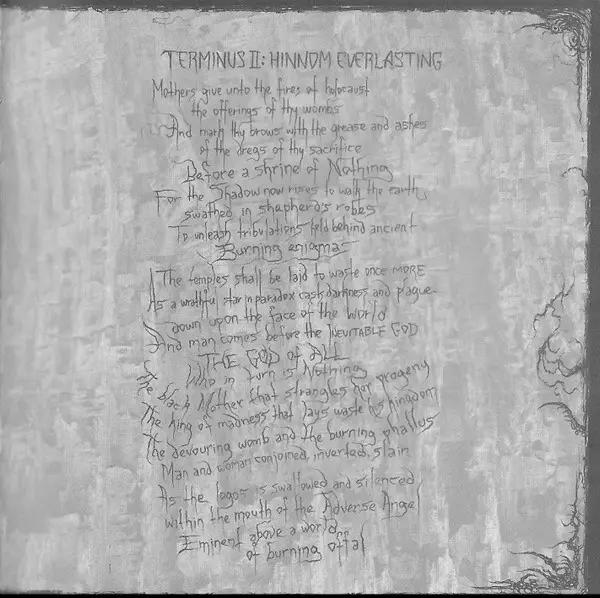 TERMINUS II: HINNOM EVERLASTING
Mothers give unto the fires of holocaust
the offerings of thy wombs
And mark thy brows with the grease and ashes
of the dregs of thy sacrifice
Before a shrine of Nothing
For the Shadow now rises to walk the earth
swathed in shepherd's robes
To unleash tribulations held behind ancient
Burning enigmas
The temples shall be laid to waste once MORE
As a wrathful star in paradox casts darkness and plague
down upon the face of the World
And man comes before the INEVITABLE GOD
THE GOD of ALL
Who in turn is Nothing
The black Mother that strangles her progeny
The king of madness that lays waste his kingdom
The devouring womb and the burning phallus
Man and woman conjoined, inverted, slain
As the logos is swallowed and silenced
within the mouth of the Adverse Angel
Eminent above a world
of burning offal